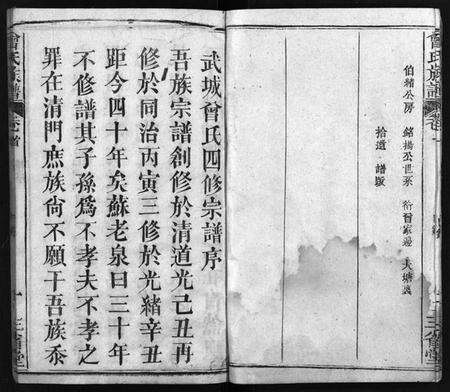 曾氏族譜
卷一
伯緒公房 銘揚公世系
拾遺 譜跋
三省堂
武城曾氏四修宗譜序
吾族宗譜創修於清道光己丑再
修於同治丙寅三修於光緒辛丑
距今四十年矣蘇老泉曰三十年
不修譜其子孫為不孝夫不孝之
罪在清門庶族尙不願干吾族忝
曾氏族譜
卷首
一
三省堂